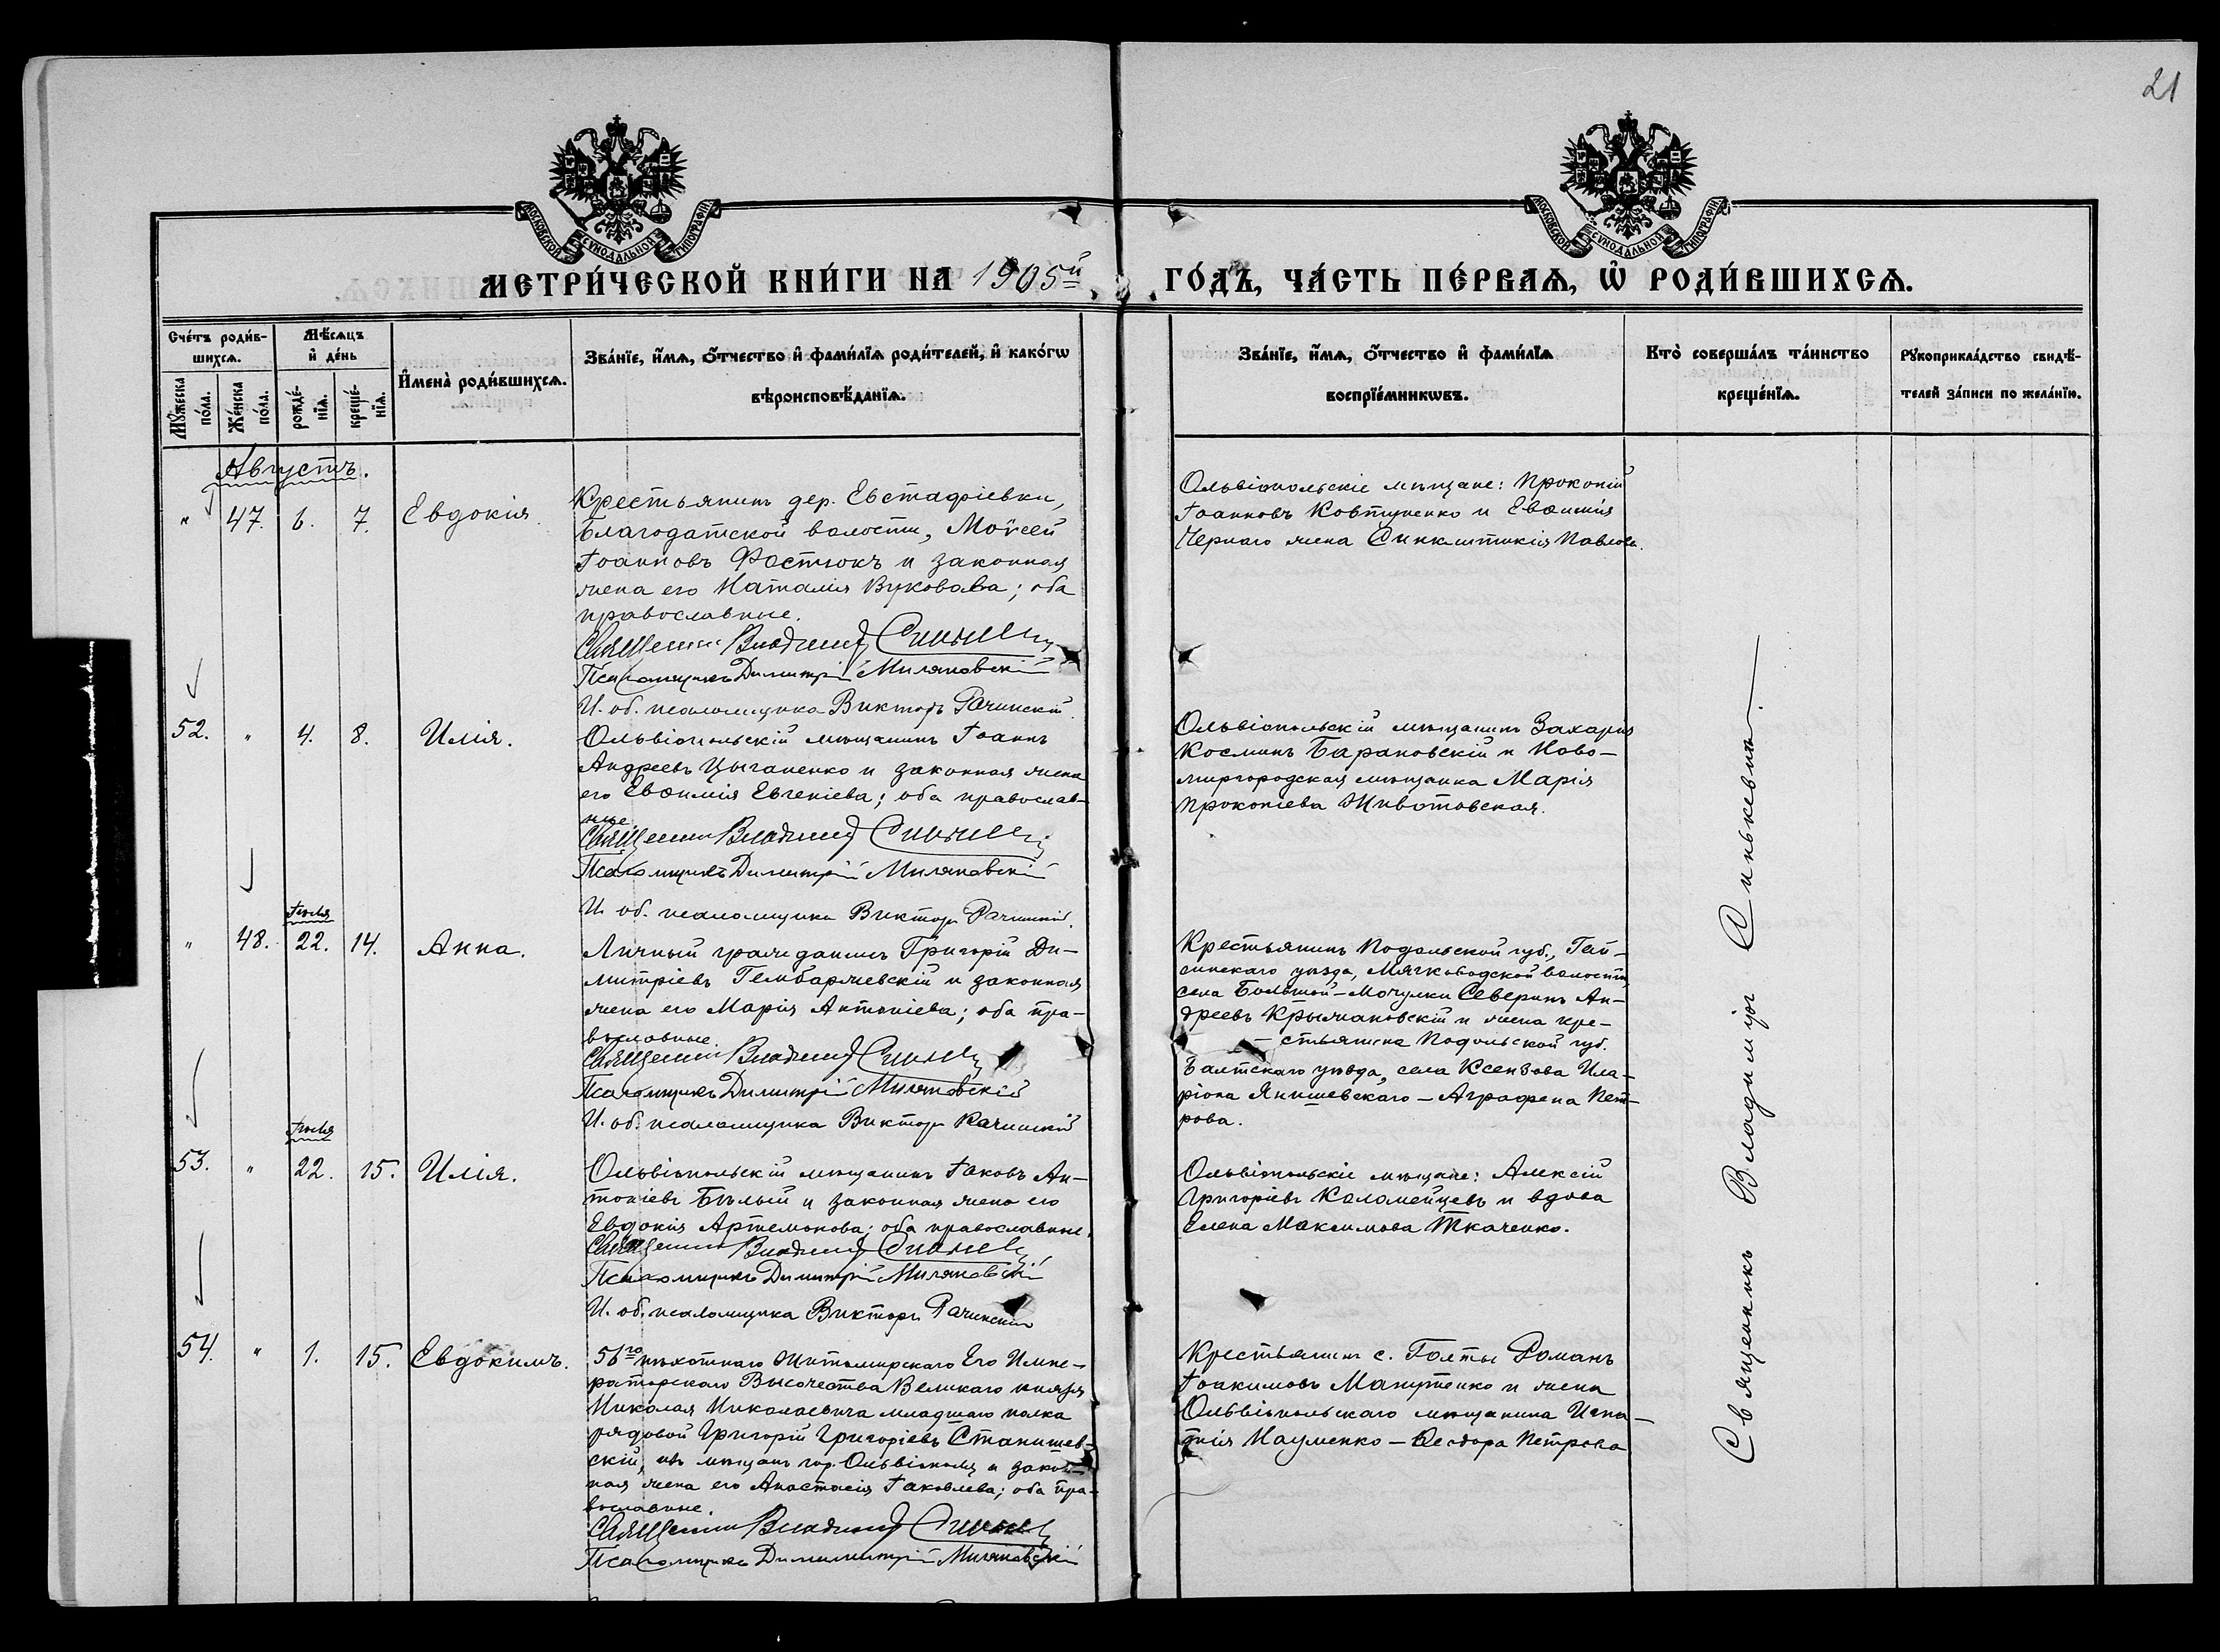 21
МОСКОВСКОЙ СУНОДАЛЬНОЙ ТИПОГРАФІИ
МОСКОВСКОЙ СУНОДАЛЬНОЙ ТИПОГРАФІИ
МЕТРИ́ЧЕСКОЙ КНИ́ГИ НА 1905й ГО́ДЪ, ЧА́СТЬ ПЕ́РВАѦ, Ѡ҆ РОДИ́ВШИХСѦ.
Сче́тъ роди́в-
шихсѧ.
Мѣ́сѧцъ
и҆ де́нь
Мꙋ́жеска по́ла.
Же́нска по́ла.
рожде́-нїѧ.
креще́-нїѧ.
И҆мена̀ роди́вшихсѧ.
Зва́нїе, и҆́мѧ, ѻ҆́тчество и҆ фами́лїѧ роди́телей, и҆ како́гѡ
вѣроисповѣ́данїѧ.
Зва́нїе, и҆́мѧ, ѻ҆́тчество и҆ фами́лїѧ
воспрїе́мникѡвъ.
Кто̀ соверша́лъ та́инство
креще́нїѧ.
Рꙋкоприкла́дство свидѣ́-
телей за́писи по жела́нїю.
Августъ.
" 47. 6. 7. Евдокія.
Крестьянинъ дер. Евстафіевки,
Благодатской волости, Моѵсей
Іоанновъ Фостюкъ и законная
жена его Наталія Вуковова; оба
православные.
Священникъ Владиміръ Синькевичъ
Псаломщикъ Димитрій Миляновскій
И. об. псаломщика Викторъ Рачинскій.
Ольвіопольскіе мѣщане: Прокопій
Іоанновъ Ковтуненко и Евѳимія
Чернаго жена Синклитикія Павлова.
52. " 4. 8. Илія.
Ольвіопольскій мѣщанинъ Іоаннъ
Андреевъ Цыганенко и законная жена
его Евѳимія Евгеніева; оба православ-
ные
Священникъ Владиміръ Синькевичъ
Псаломщикъ Димитрій Миляновскій
И. об. псаломщика Викторъ Рачинскій.
Ольвіопольскій мѣщанинъ Захарія
Косминъ Барановскій и Ново-
миргородская мѣщанка Марія
Прокопіева Животовская.
Іюля
" 48. 22. 14. Анна.
Личный гражданинъ Григорій Ди-
митріевъ Гембаржевскій и законная
жена его Марія Антоніева; оба пра-
вославные.
Священникъ Владиміръ Синькевичъ
Псаломщикъ Димитрій Миляновскій
И. об. псаломщика Викторъ Рачинскій
Крестьянинъ Подольской губ., Гай-
синскаго уѣзда, Мягкоходской волости,
села Большой-Мочулки Северинъ Ан-
дреевъ Крыжановскій и жена кре-
- стьянина Подольской губ.
Балтскаго уѣзда, села Ксензова Ила-
ріона Янишевскаго - Аграфена Пет-
рова.
Іюля
53. " 22. 15. Илія.
Ольвіопольскій мѣщанинъ Іаковъ Ан-
тоніевъ Бѣлый и законная жена его
Евдокія Артемонова; оба православные.
Священникъ Владиміръ Синькевичъ
Псаломщикъ Димитрій Миляновскій
И. об. псаломщика Викторъ Рачинскій
Ольвіопольскіе мѣщане: Алексій
Григоріевъ Коломейцевъ и вдова
Елена Максимова Ткаченко.
54. " 1. 15. Евдокимъ.
56го пѣхотнаго Житомирскаго Его Импе-
раторскаго Высочества Великаго князя
Николая Николаевича младшаго полка
рядовой Григорій Григоріевъ Станишев-
скій, изъ мѣщанъ гор. Ольвіополя и закон-
ная жена его Анастасія Іаковлева; оба пра-
вославные.
Священникъ Владиміръ Синькевичъ
Псаломщикъ Димитрій Миляновскій
Крестьянинъ с. Голты Романъ
Іоакимовъ Мапутенко и жена
Ольвіопольскаго мѣщанина Игна-
тія Науменко - Ѳеодора Петрова
Священникъ Владиміръ Синькевичъ.